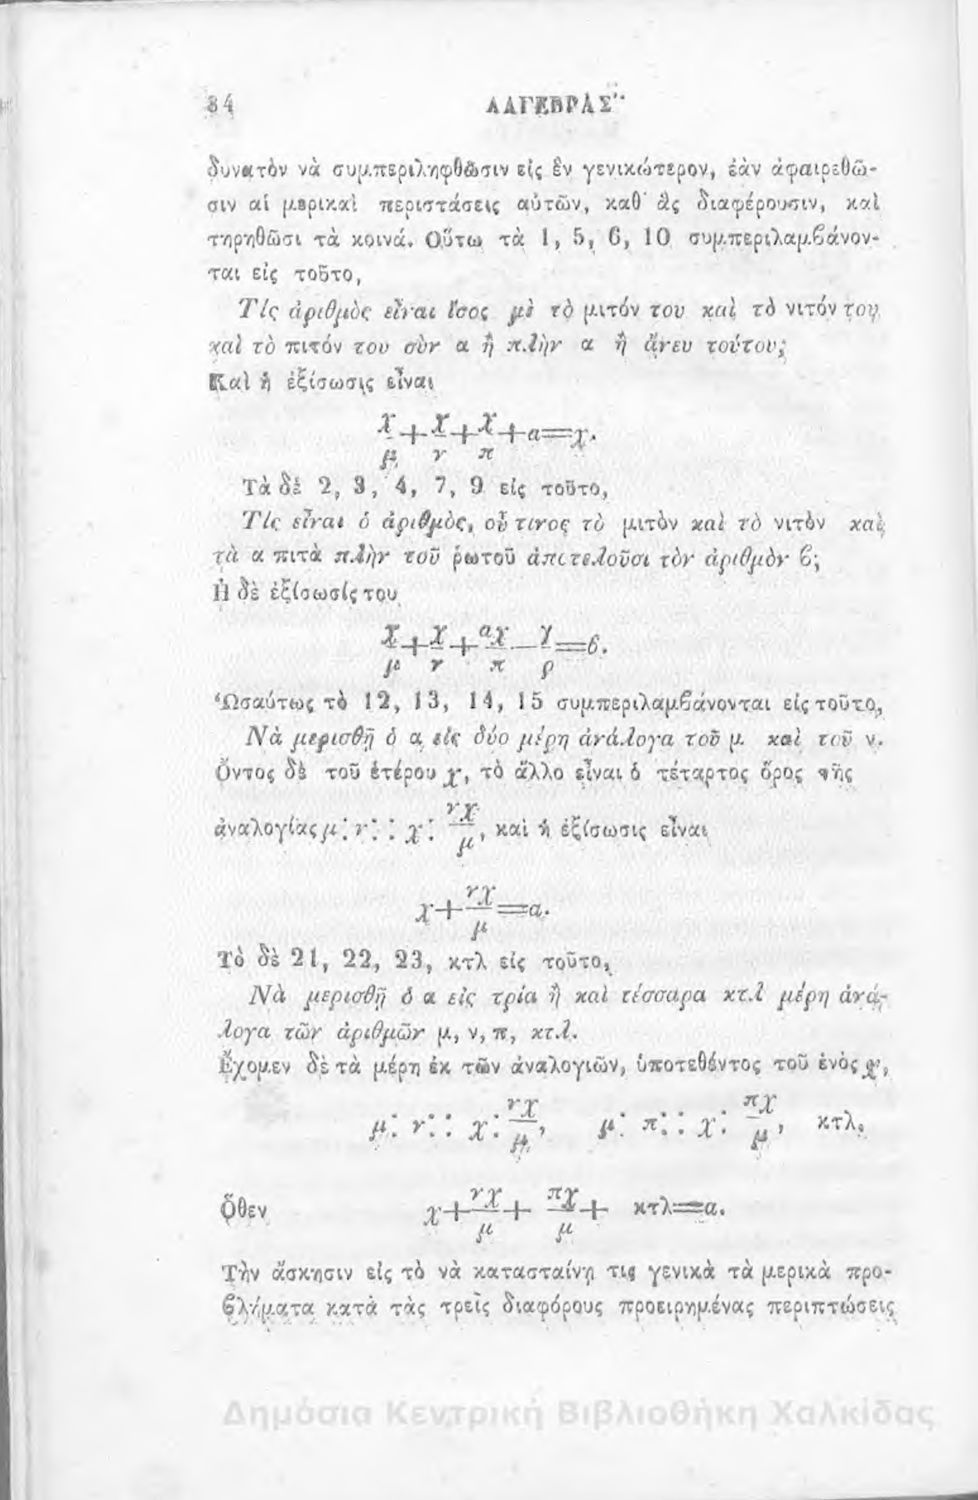 84 ΑΛΓΕΒΡΑΣ
δυνατὸν νὰ συμπεριληφθῶσιν εἰς ἓν γενικώτερον, ἐὰν ἀφαιρεθῶ-
σιν αἱ μερικαὶ περιστάσεις αὐτῶν, καθ' ἃς διαφέρουσιν, καὶ
τηρηθῶσι τὰ κοινά. Οὕτω τὰ 1, 5, 6, 10 συμπεριλαμβάνον-
ται εἰς τοῦτο,
Τίς ἀριθμὸς εἶναι ἴσος μὲ τὸ μιτόν του καὶ τὸ νιτόν του
καὶ τὸ πιτόν του σὺν α ἢ πλὴν α ἢ ἄνευ τούτου;
Καὶ ἡ ἐξίσωσις εἶναι
χ/μ + χ/ν + χ/π + α = χ.
Τὰ δὲ 2, 3, 4, 7, 9 εἰς τοῦτο,
Τίς εἶναι ὁ ἀριθμὸς, οὗ τινος τὸ μιτὸν καὶ τὸ νιτὸν καὶ
τὰ α πιτὰ πλὴν τοῦ ῥωτοῦ ἀποτελοῦσι τὸν ἀριθμὸν β;
Ἡ δὲ ἐξίσωσίς του
χ/μ + χ/ν + αχ/π − χ/ρ = β.
Ὡσαύτως τὸ 12, 13, 14, 15 συμπεριλαμβάνονται εἰς τοῦτο,
Νὰ μερισθῇ ὁ α εἰς δύο μέρη ἀνάλογα τοῦ μ καὶ τοῦ ν.
Ὄντος δὲ τοῦ ἑτέρου χ, τὸ ἄλλο εἶναι ὁ τέταρτος ὅρος τῆς
ἀναλογίας μ : ν : : χ : νχ/μ, καὶ ἡ ἐξίσωσις εἶναι
χ + νχ/μ = α.
Τὸ δὲ 21, 22, 23, κτλ εἰς τοῦτο,
Νὰ μερισθῇ ὁ α εἰς τρία ἢ καὶ τέσσαρα κτλ μέρη ἀνά-
λογα τῶν ἀριθμῶν μ, ν, π, κτλ.
Ἔχομεν δὲ τὰ μέρη ἐκ τῶν ἀναλογιῶν, ὑποτεθέντος τοῦ ἑνὸς χ,
μ : ν : : χ : νχ/μ, μ : π : : χ : πχ/μ, κτλ,
ὅθεν χ + νχ/μ + πχ/μ + κτλ = α.
Τὴν ἄσκησιν εἰς τὸ νὰ κατασταίνῃ τις γενικὰ τὰ μερικὰ προ-
βλήματα κατὰ τὰς τρεῖς διαφόρους προειρημένας περιπτώσεις
Δημόσια Κεντρική Βιβλιοθήκη Χαλκίδας